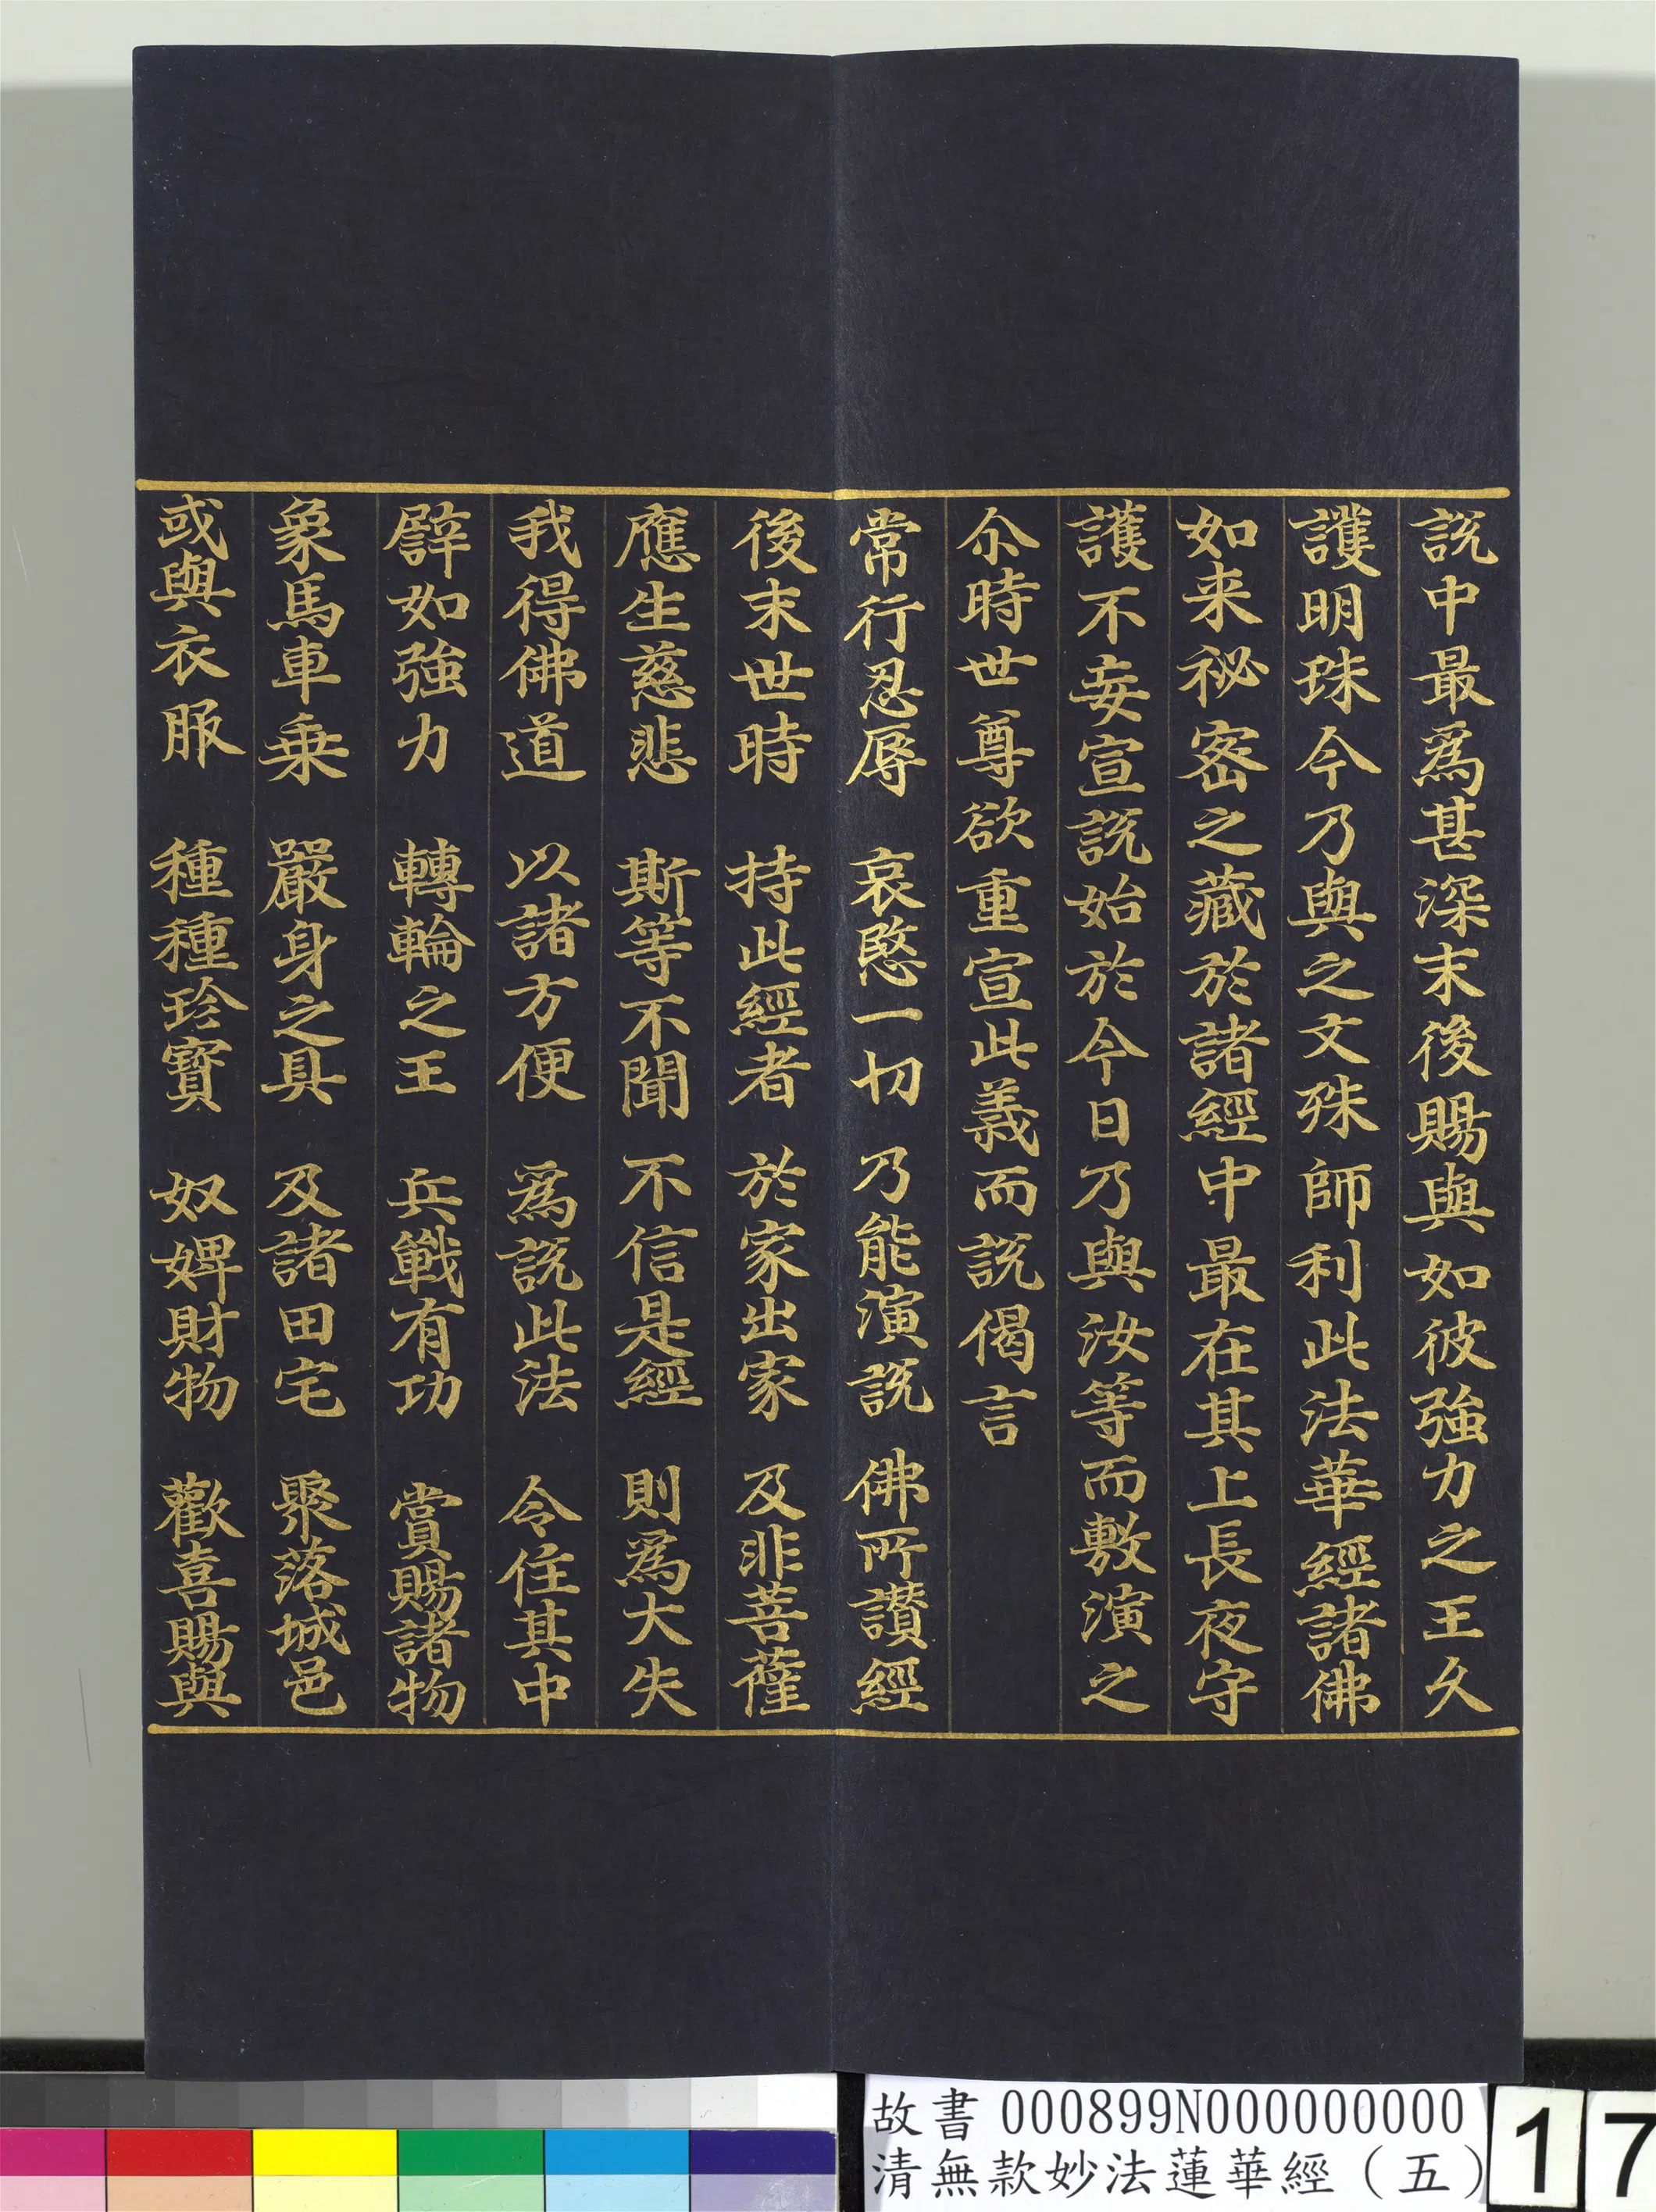 説中最為甚深末後賜與如彼強力之王久
護明珠今乃與之文殊師利此法華經諸佛
如来祕密之藏於諸經中最在其上長夜守
護不妄宣説始於今日乃與汝等而敷演之
尒時世尊欲重宣此義而説偈言
常行忍辱 哀愍一切 乃能演説 佛所讃經
後末世時 持此經者 於家出家 及非菩薩
應生慈悲 斯等不聞 不信是經 則為大失
我得佛道 以諸方便 為説此法 令住其中
譬如強力 轉輪之王 兵戰有功 賞賜諸物
象馬車乗 嚴身之具 及諸田宅 聚落城邑
或與衣服 種種珍寶 奴婢財物 歡喜賜與
故書 000899N000000000
清無款妙法蓮華經（五）
17